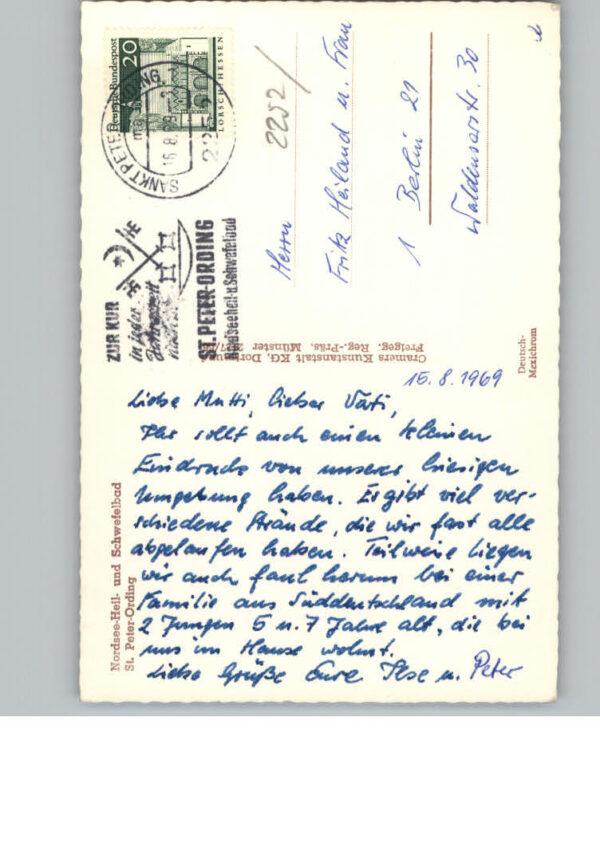 Deutsche Bundespost
20
LORSCH/HESSEN
SANKT PETER-ORDING
16.8.69
2252
ZUR KUR
in jeder
Jahreszeit
nach
ST. PETER-ORDING
Nordseeheil-u Schwefelbad
2252/
Herrn
Fritz Heiland u. Frau
1 Berlin 21
Waldenserstr. 30
Cramers Kunstanstalt KG, Dortmund
Freigeg. Reg.-Präs. Münster
Deutsch-
Mexichrom
Nordsee-Heil- und Schwefelbad
St. Peter-Ording
15.8.1969
Liebe Mutti, lieber Vati,
Ihr sollt auch einen kleinen
Eindruck von unserer hiesigen
Umgebung haben. Es gibt viel ver-
schiedene Strände, die wir fast alle
abgelaufen haben. Teilweise liegen
wir auch faul herum bei einer
Familie aus Süddeutschland mit
2 Jungen 5 u. 7 Jahre alt, die bei
uns im Hause wohnt.
Liebe Grüße Eure Ilse u. Peter